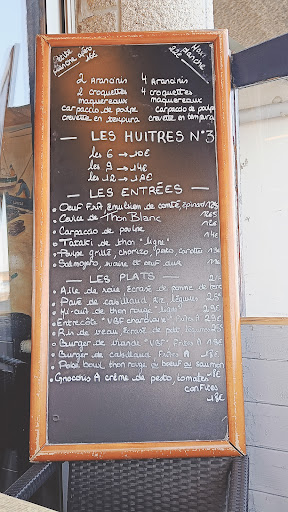 Petite Planche apéro 16€
Maxi planche 22€
2 Arancinis 4 Arancinis
2 croquettes 4 croquettes
maquereaux maquereaux
carpaccio de poulpe carpaccio de poulpe
crevette en tempura crevette en tempura
— LES HUITRES N°3
les 6 → 10€
les 9 → 14€
les 12 → 19€
— LES ENTRÉES —
• Oeuf Frit, émulsion de comté, épinard
• Thon Blanc 12€5
• Carpaccio de poulpe 14€
• Tataki de thon "ligne"
• Poulpe grillé, chorizo, pesto, carotte
• Salmorejo,
— LES PLATS —
• Aile de raie, Écrasé de pomme de terre
• Pavé de cabillaud, riz, légumes 25€
• Mi-cuit de thon rouge "ligne"
• Entrecôte "VBF
• Ris de veau, écrasé de
• Burger de viande "VBF" Frites A 19€
• Burger de cabillaud, Frites A 18€
• Poké bowl, thon rouge ou boeuf ou saumon
• Gnocchis A crème de pesto, tomates
confites 18€